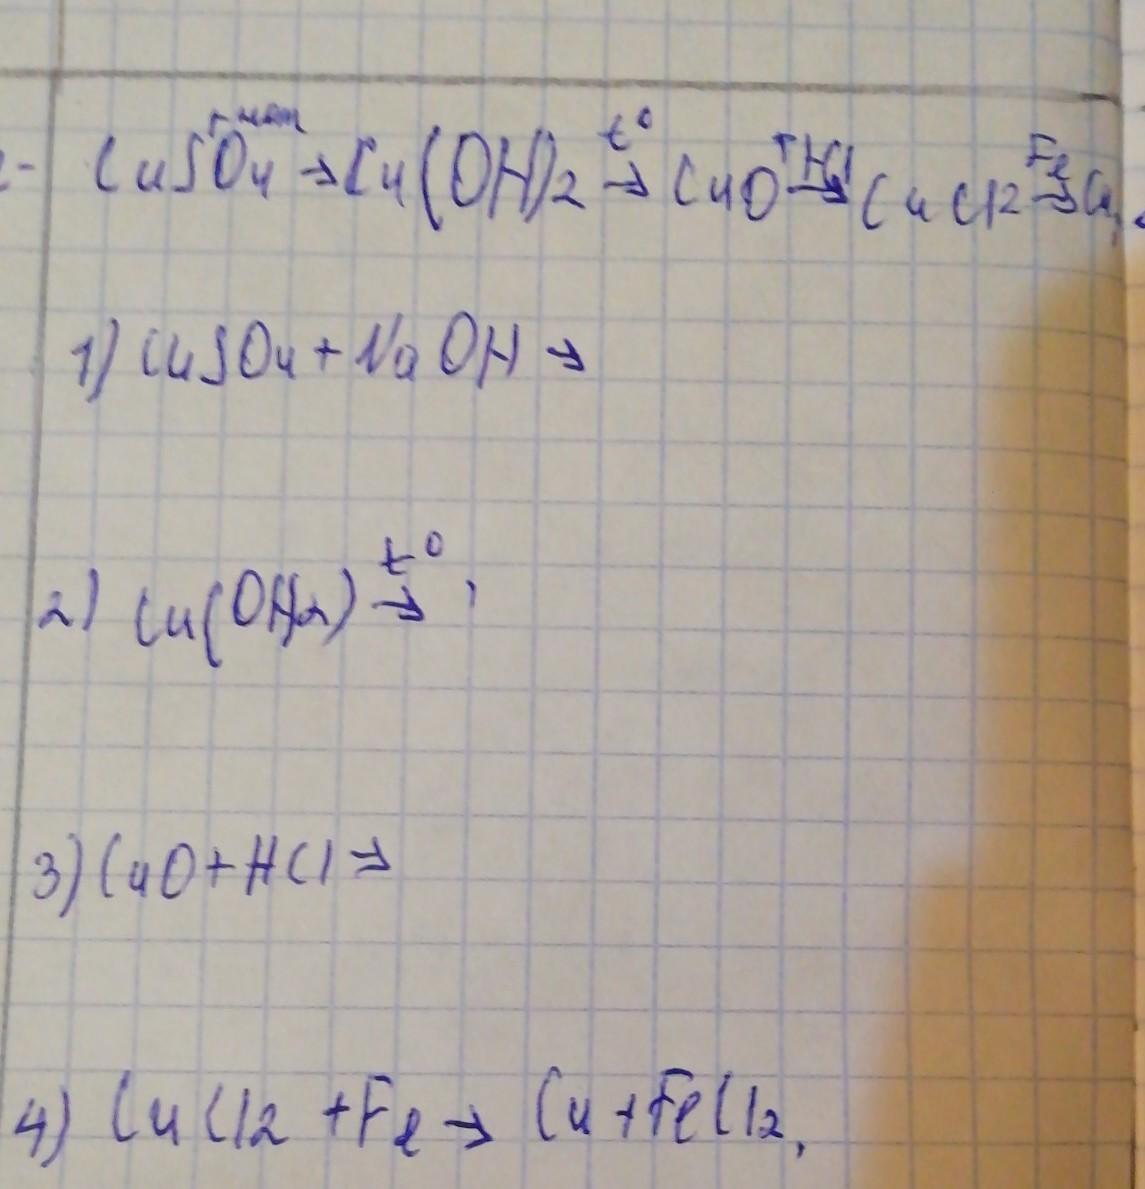 CuSO4 → Cu(OH)2 t° → CuO +HCl → CuCl2 Fe → Cu
1) CuSO4 + NaOH →
2) Cu(OH2) t° →
3) CuO + HCl →
4) CuCl2 + Fe → Cu + FeCl2,